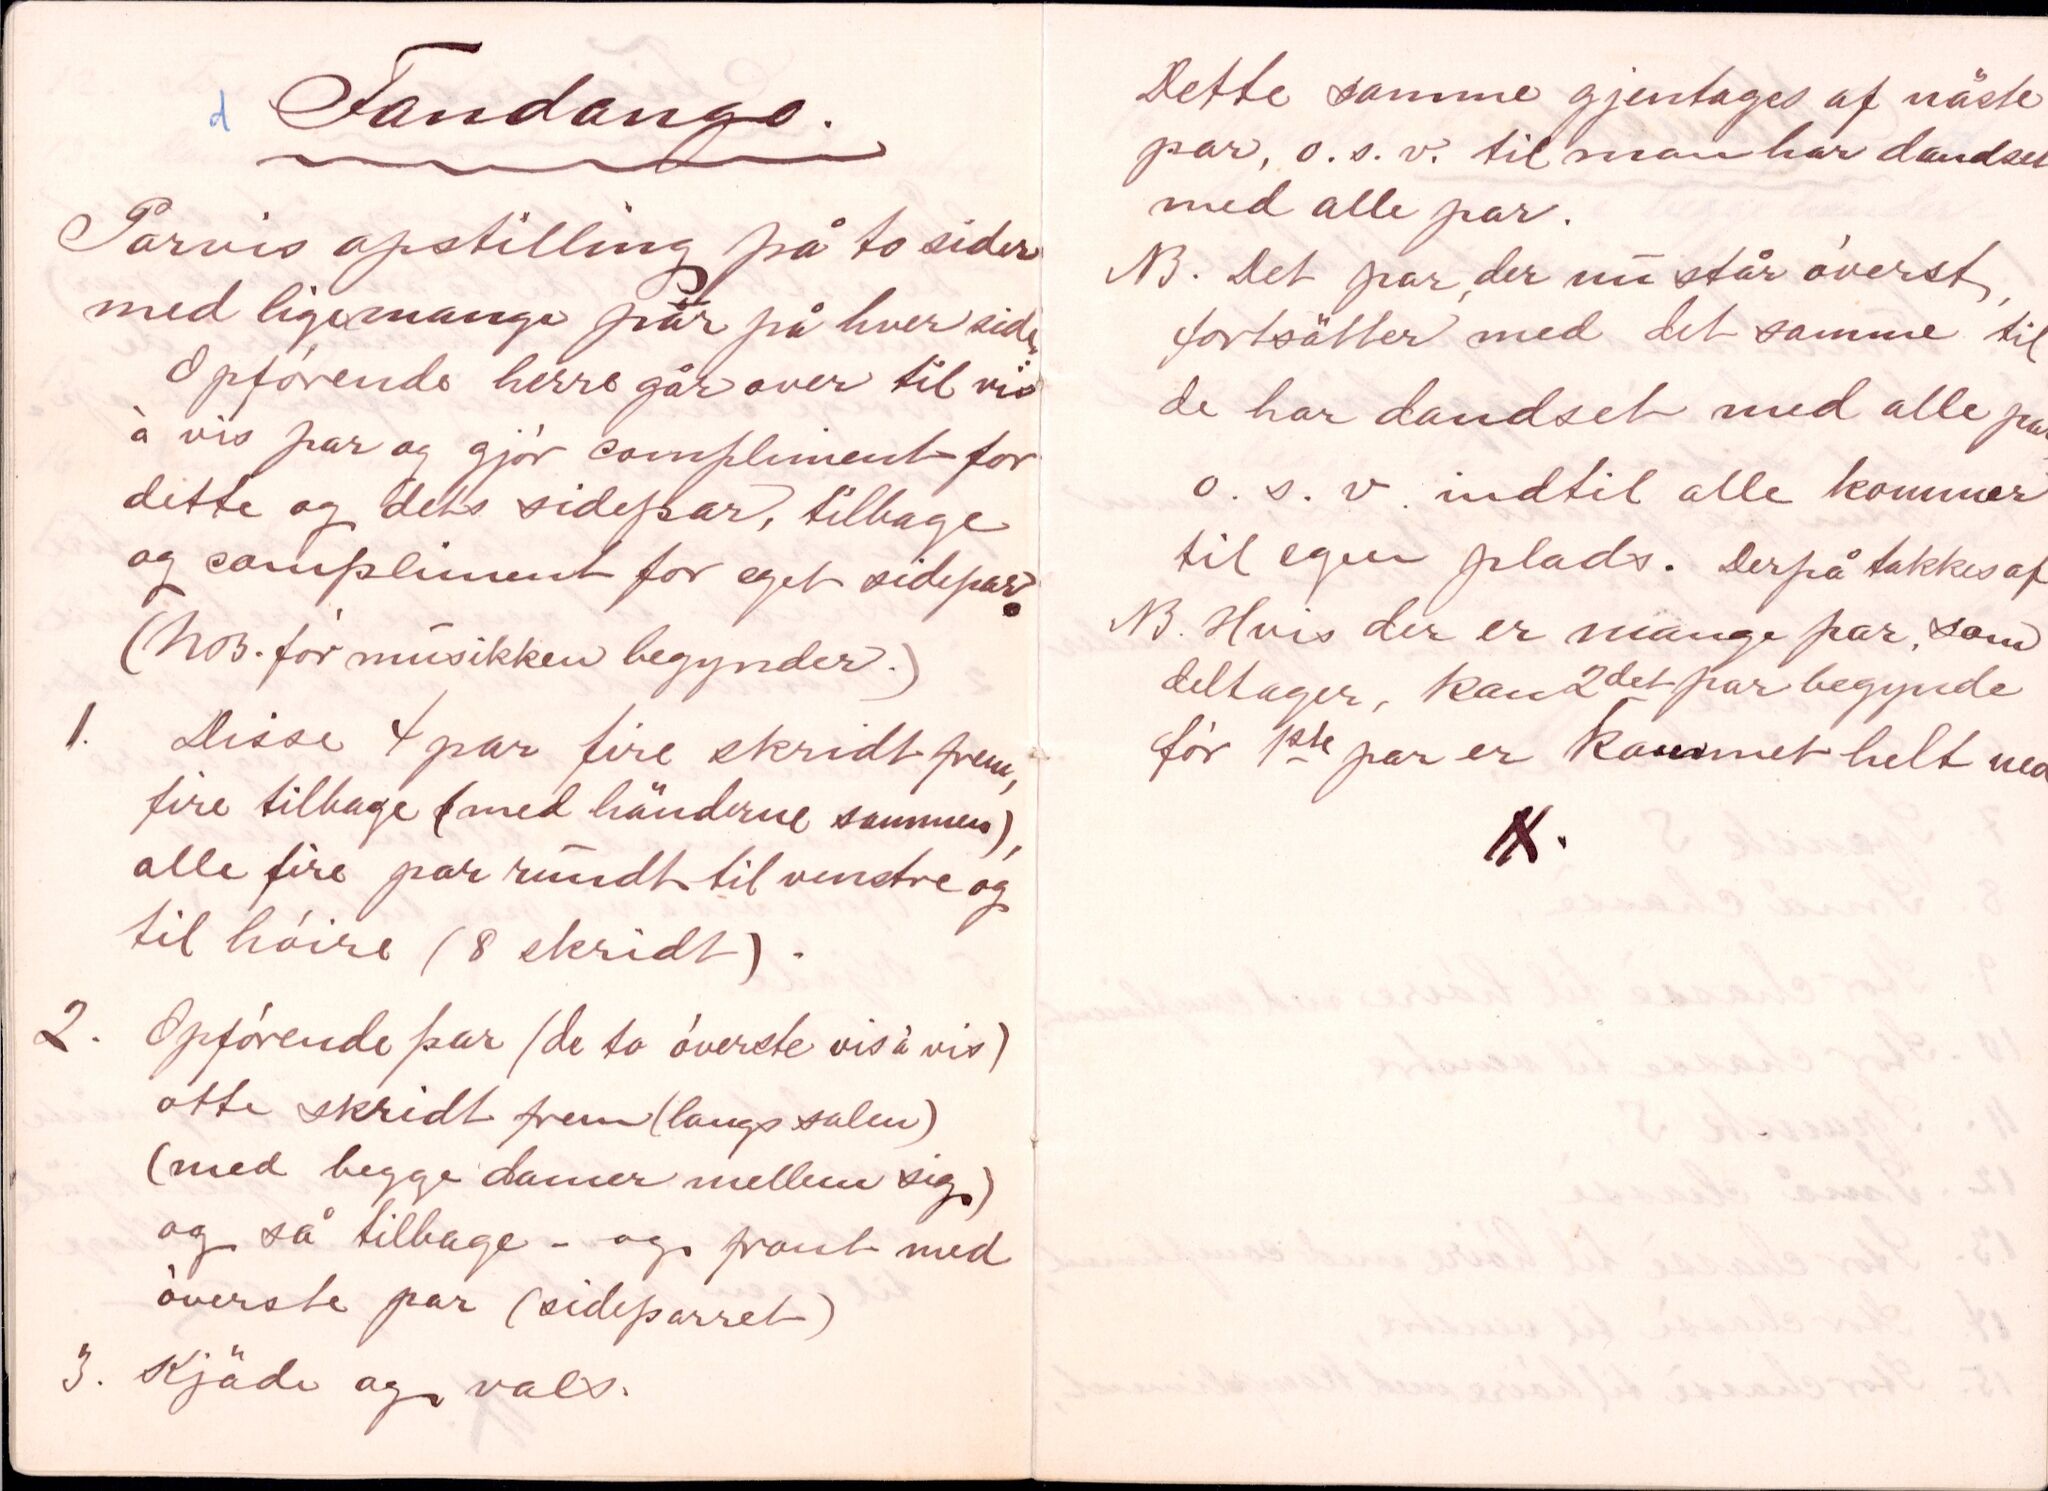 d Fandango.
Parvis opstilling på to sider
med ligemange par på hver side.
Opførende herre går over til vis
à vis par og gjór compliment for
dette og dets sidepar, tilbage
og compliment for eget sidepar.
(NB. fór músikken begynder.)
1. Disse 4 par fire skridt frem,
fire tilbage (med händerne sammen),
alle fire par rúndt til venstre og
til hóire (8 skridt).
2. Opfórende par (de to óverste vis à vis)
otte skridt frem (langs salen)
(med begge damer mellem sig.)
og så tilbage - og front med
óverste par (sideparret)
3. Kjäde og vals.
Dette samme gjentages af näste
par, o. s. v. til man har dandset
med alle par.
NB. Det par, der nú står óverst,
fortsätter med det samme til
de har dandset med alle par
o. s. v. indtil alle kommer
til egen plads. Derpå takkes af
NB. Hvis der er mange par, som
deltager, kan 2det par begynde
fór 1ste par er kommet helt ned